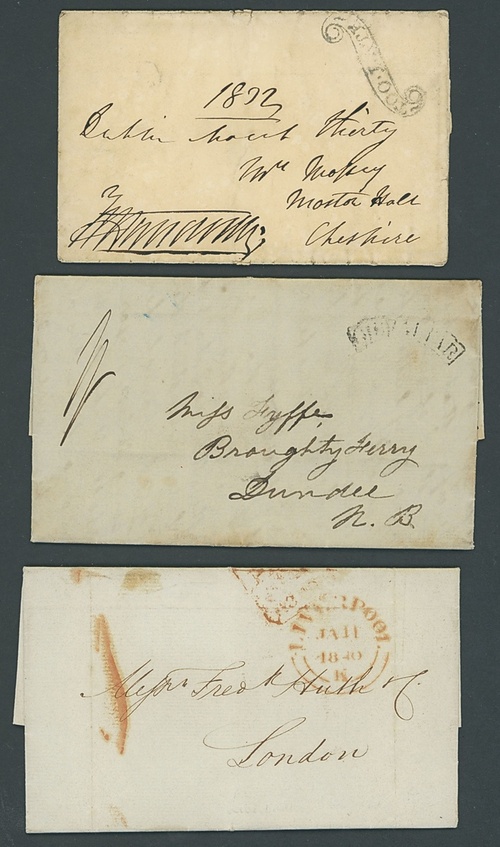 1832
Dublin March thirty
Mrs Mossy
Moston Hall
Cheshire
Miss Fyffe,
Broughty Ferry
Dundee
N. B.
LIVERPOOL
JA 11
1840
K
Messrs Fredk Huth & C
London